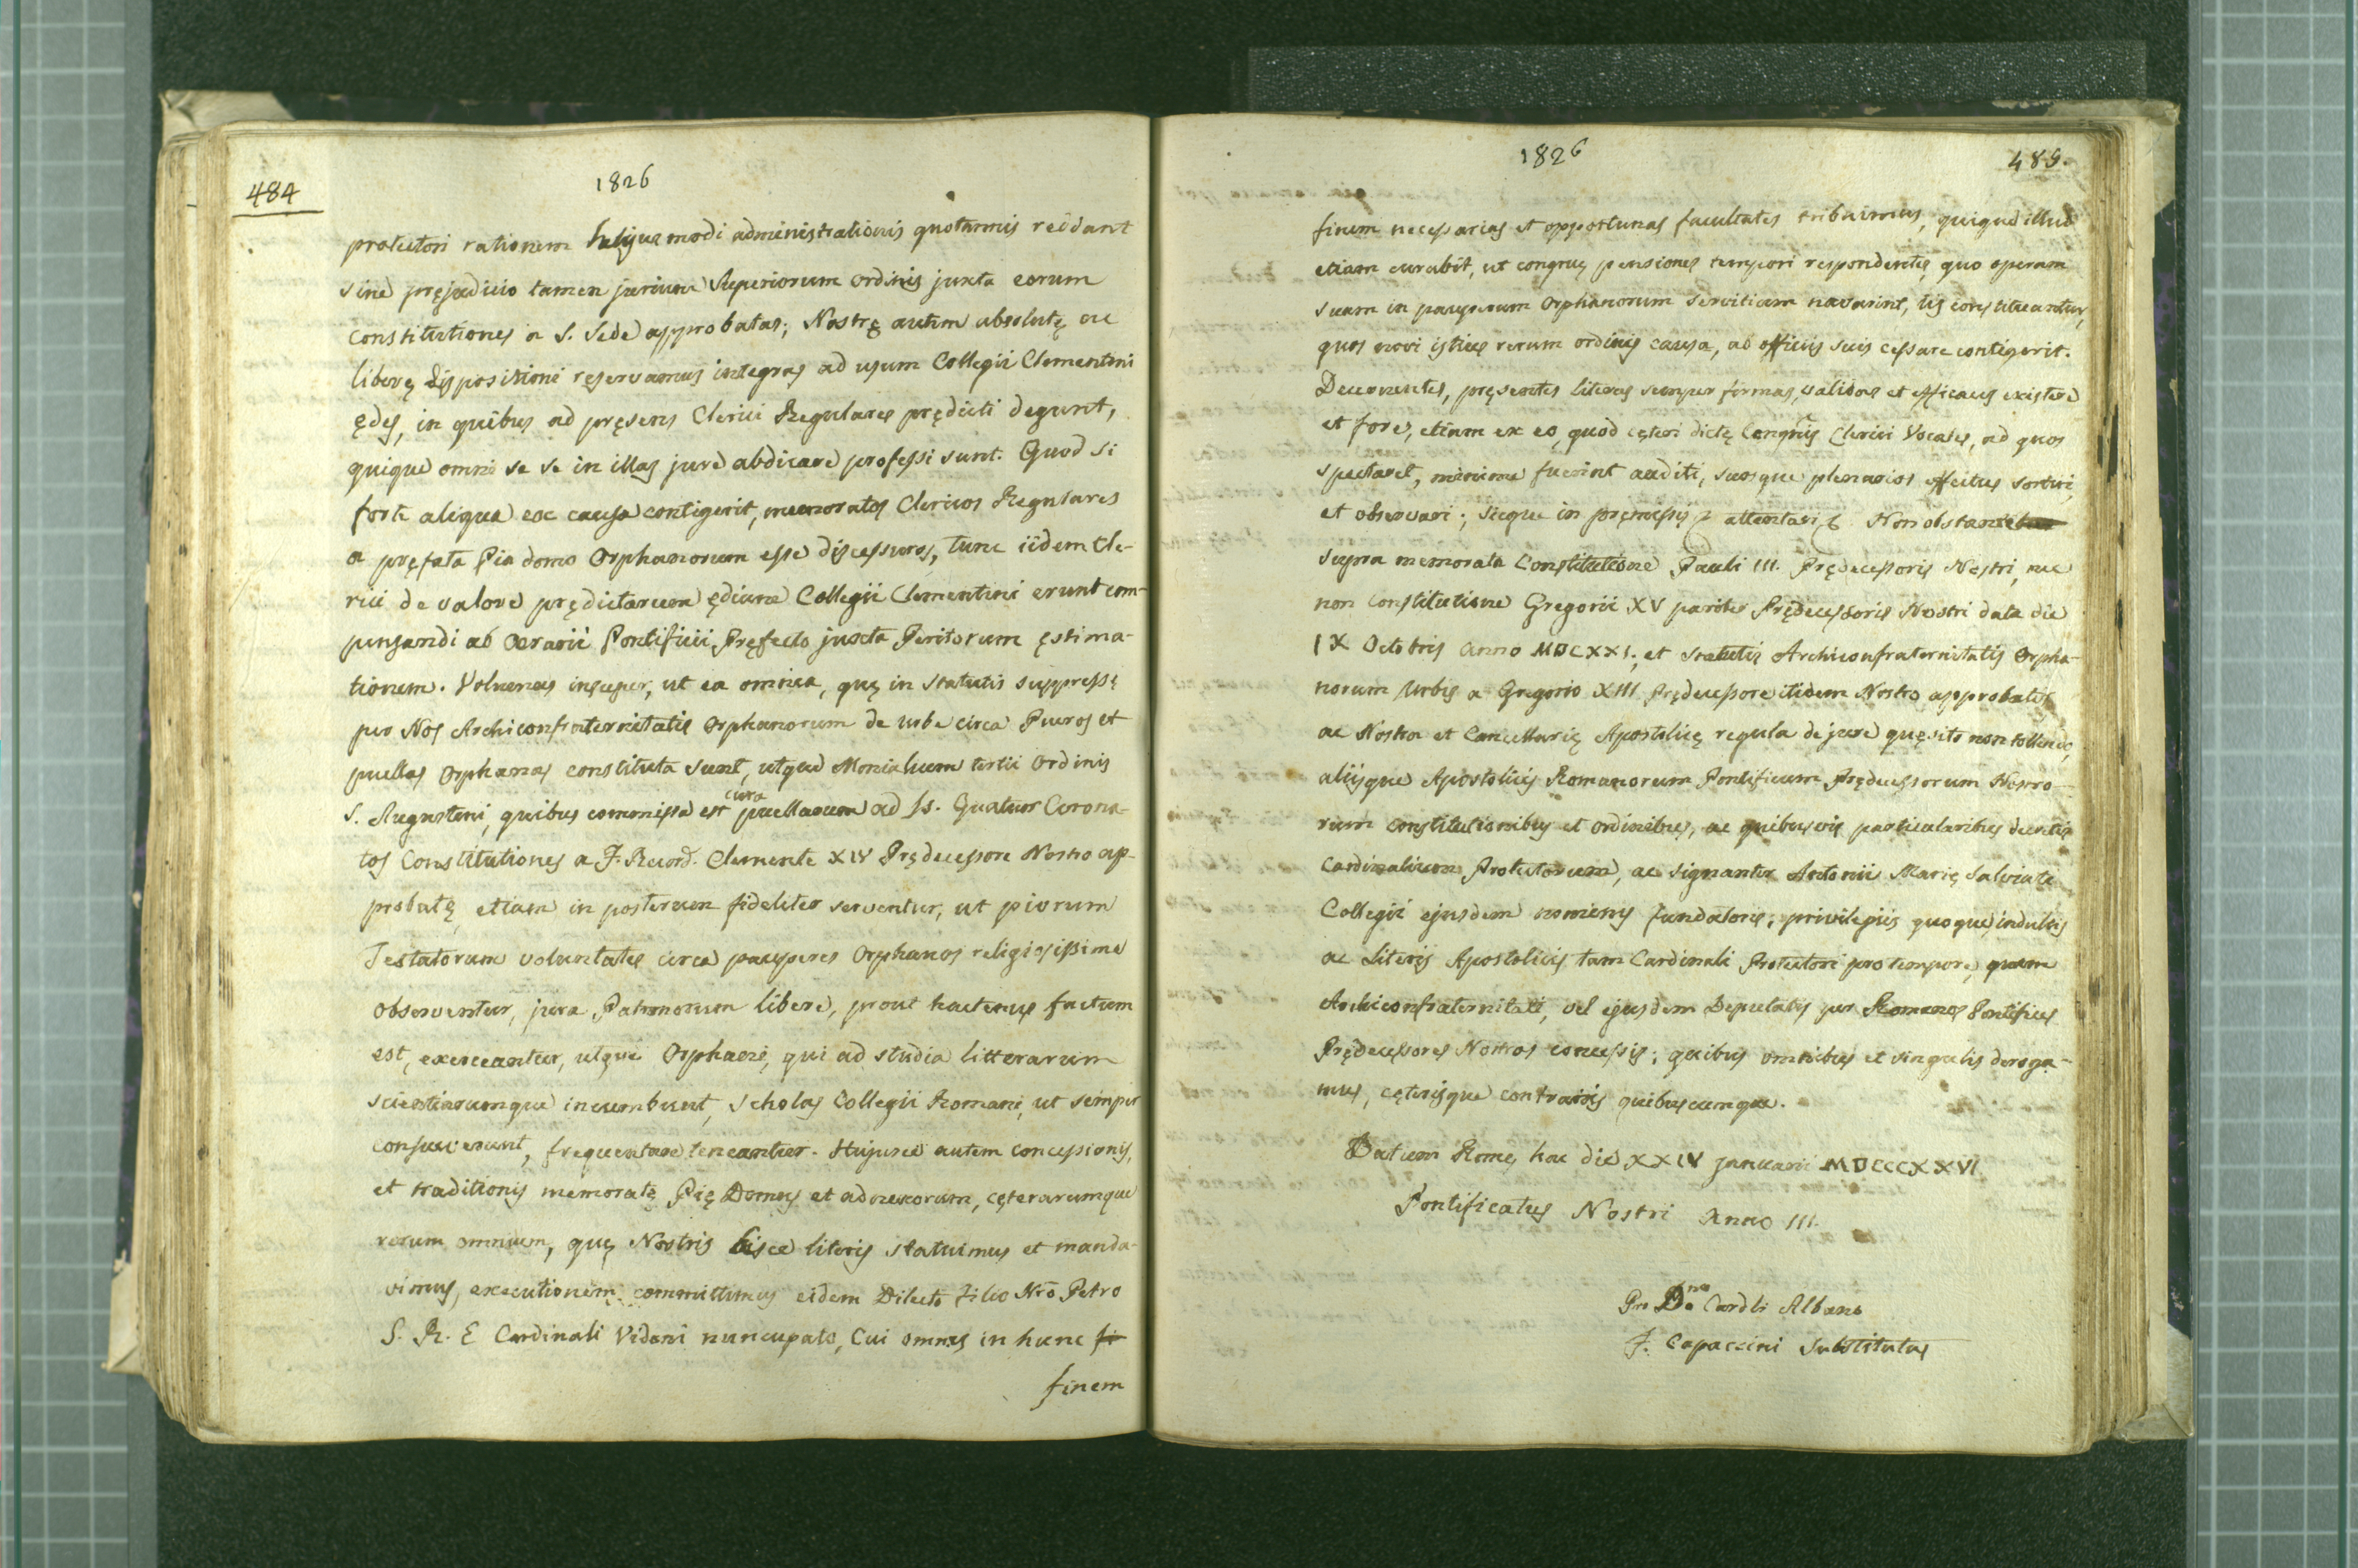 484
1826
protectori rationem hujusmodi administrationis quotannis reddant
sine pręjudicio tamen jurium Superiorum ordinis juxta eorum
constitutiones a S. Sede approbatas; Nostrę autem absolutę ac
liberę dispositioni reservamus integras ad usum Collegii Clementini
ędes, in quibus ad pręsens Clerici Regulares prędicti degunt,
quique omni se se in illas jure abdicare professi sunt. Quod si
forte aliqua ex causa contigerit, memoratos Clericos Regulares
a pręfata Pia domo Orphanorum esse discessuros, tunc iidem Cle-
rici de valore prędictarum ędium Collegii Clementini erunt com-
pensandi ab Aerarii Pontificii Pręfecto juxta Peritorum ęstima-
tionem. Volumus insuper, ut ea omnia, quę in statutis suppressę
per Nos Archiconfraternitatis Orphanorum de urbe circa Pueros et
puellas Orphanas constituta sunt, utque Monialium tertii ordinis
S. Augustini, quibus commissa est cura puellarum ad Ss. Quatuor Corona-
tos Constitutiones a F. Record. Clemente XIV Prędecessore Nostro ap-
probatę etiam in posterum fideliter serventur, ut piorum
Testatorum voluntates circa pauperes Orphanos religiosissime
observentur, jura Patronorum libere, prout hactenus factum
est, exerceantur, utque Orphani, qui ad studia litterarum
scientiarumque incumbunt, scholas Collegii Romani, ut semper
consueverunt, frequentare teneantur. Hujusce autem concessionis,
et traditionis memoratę Pię Domus et adnexorum, cęterarumque
rerum omnium, quę Nostris hisce literis statuimus et manda-
vimus, executionem committimus eidem Dilecto filio Nrō Petro
S. R. E Cardinali Vidoni nuncupato, Cui omnes in hunc fi
finem
1826
485.
finem necessarias et opportunas facultates tribuimus, quique illud
etiam curabit, ut congruę pensiones tempori respondentes, quo operam
suam in pauperum Orphanorum servitium navarint, iis constituantur,
quos novi istius rerum ordinis causa, ab officiis suis cessare contigerit.
Decernentes, pręsentes literas semper firmas, validas et efficaces existere
et fore, etiam ex eo, quod cęteri dictę Congnis Clerici Vocales, ad quos
spectaret, minime fuerint auditi, suosque plenarios effectus sortiri,
et observari; sicque in pręmissis & attentari &. Non obstante
supra memorata Constitutione Pauli III. Prędecessoris Nostri, nec
non Constitutione Gregorii XV pariter Prędecessoris Nostri data die
IX Octobris anno MDCXXI; et statutis Archiconfraternitatis Orpha-
norum Urbis a Gregorio XIII Prędecessore itidem Nostro approbatis
ac Nostra et Cancellarię Apostolicę regula de jure quęsito non tollendo,
aliisque Apostolicis Romanorum Pontificum Prędecessorum Nostro-
rum constitutionibus et ordinibus, ac quibusvis particularibus decretis
Cardinalium Protectorum, ac signanter Antonii Marię Salviati
Collegii ejusdem nominis fundatoris; privilegiis quoque, indultis
ac Literis Apostolicis tam Cardinali Protectori pro tempore, quam
Archiconfraternitati, vel ejusdem Deputatis per Romanos Pontifices
Prędecessores Nostros concessis; quibus omnibus et singulis deroga-
mus, cęterisque contrariis quibuscumque.
Datum Romę hac die XXIV januarii MDCCCXXVI
Pontificatus Nostri Anno III.
Pro Dno Cardli Albano
F. Capaccini Substitutus